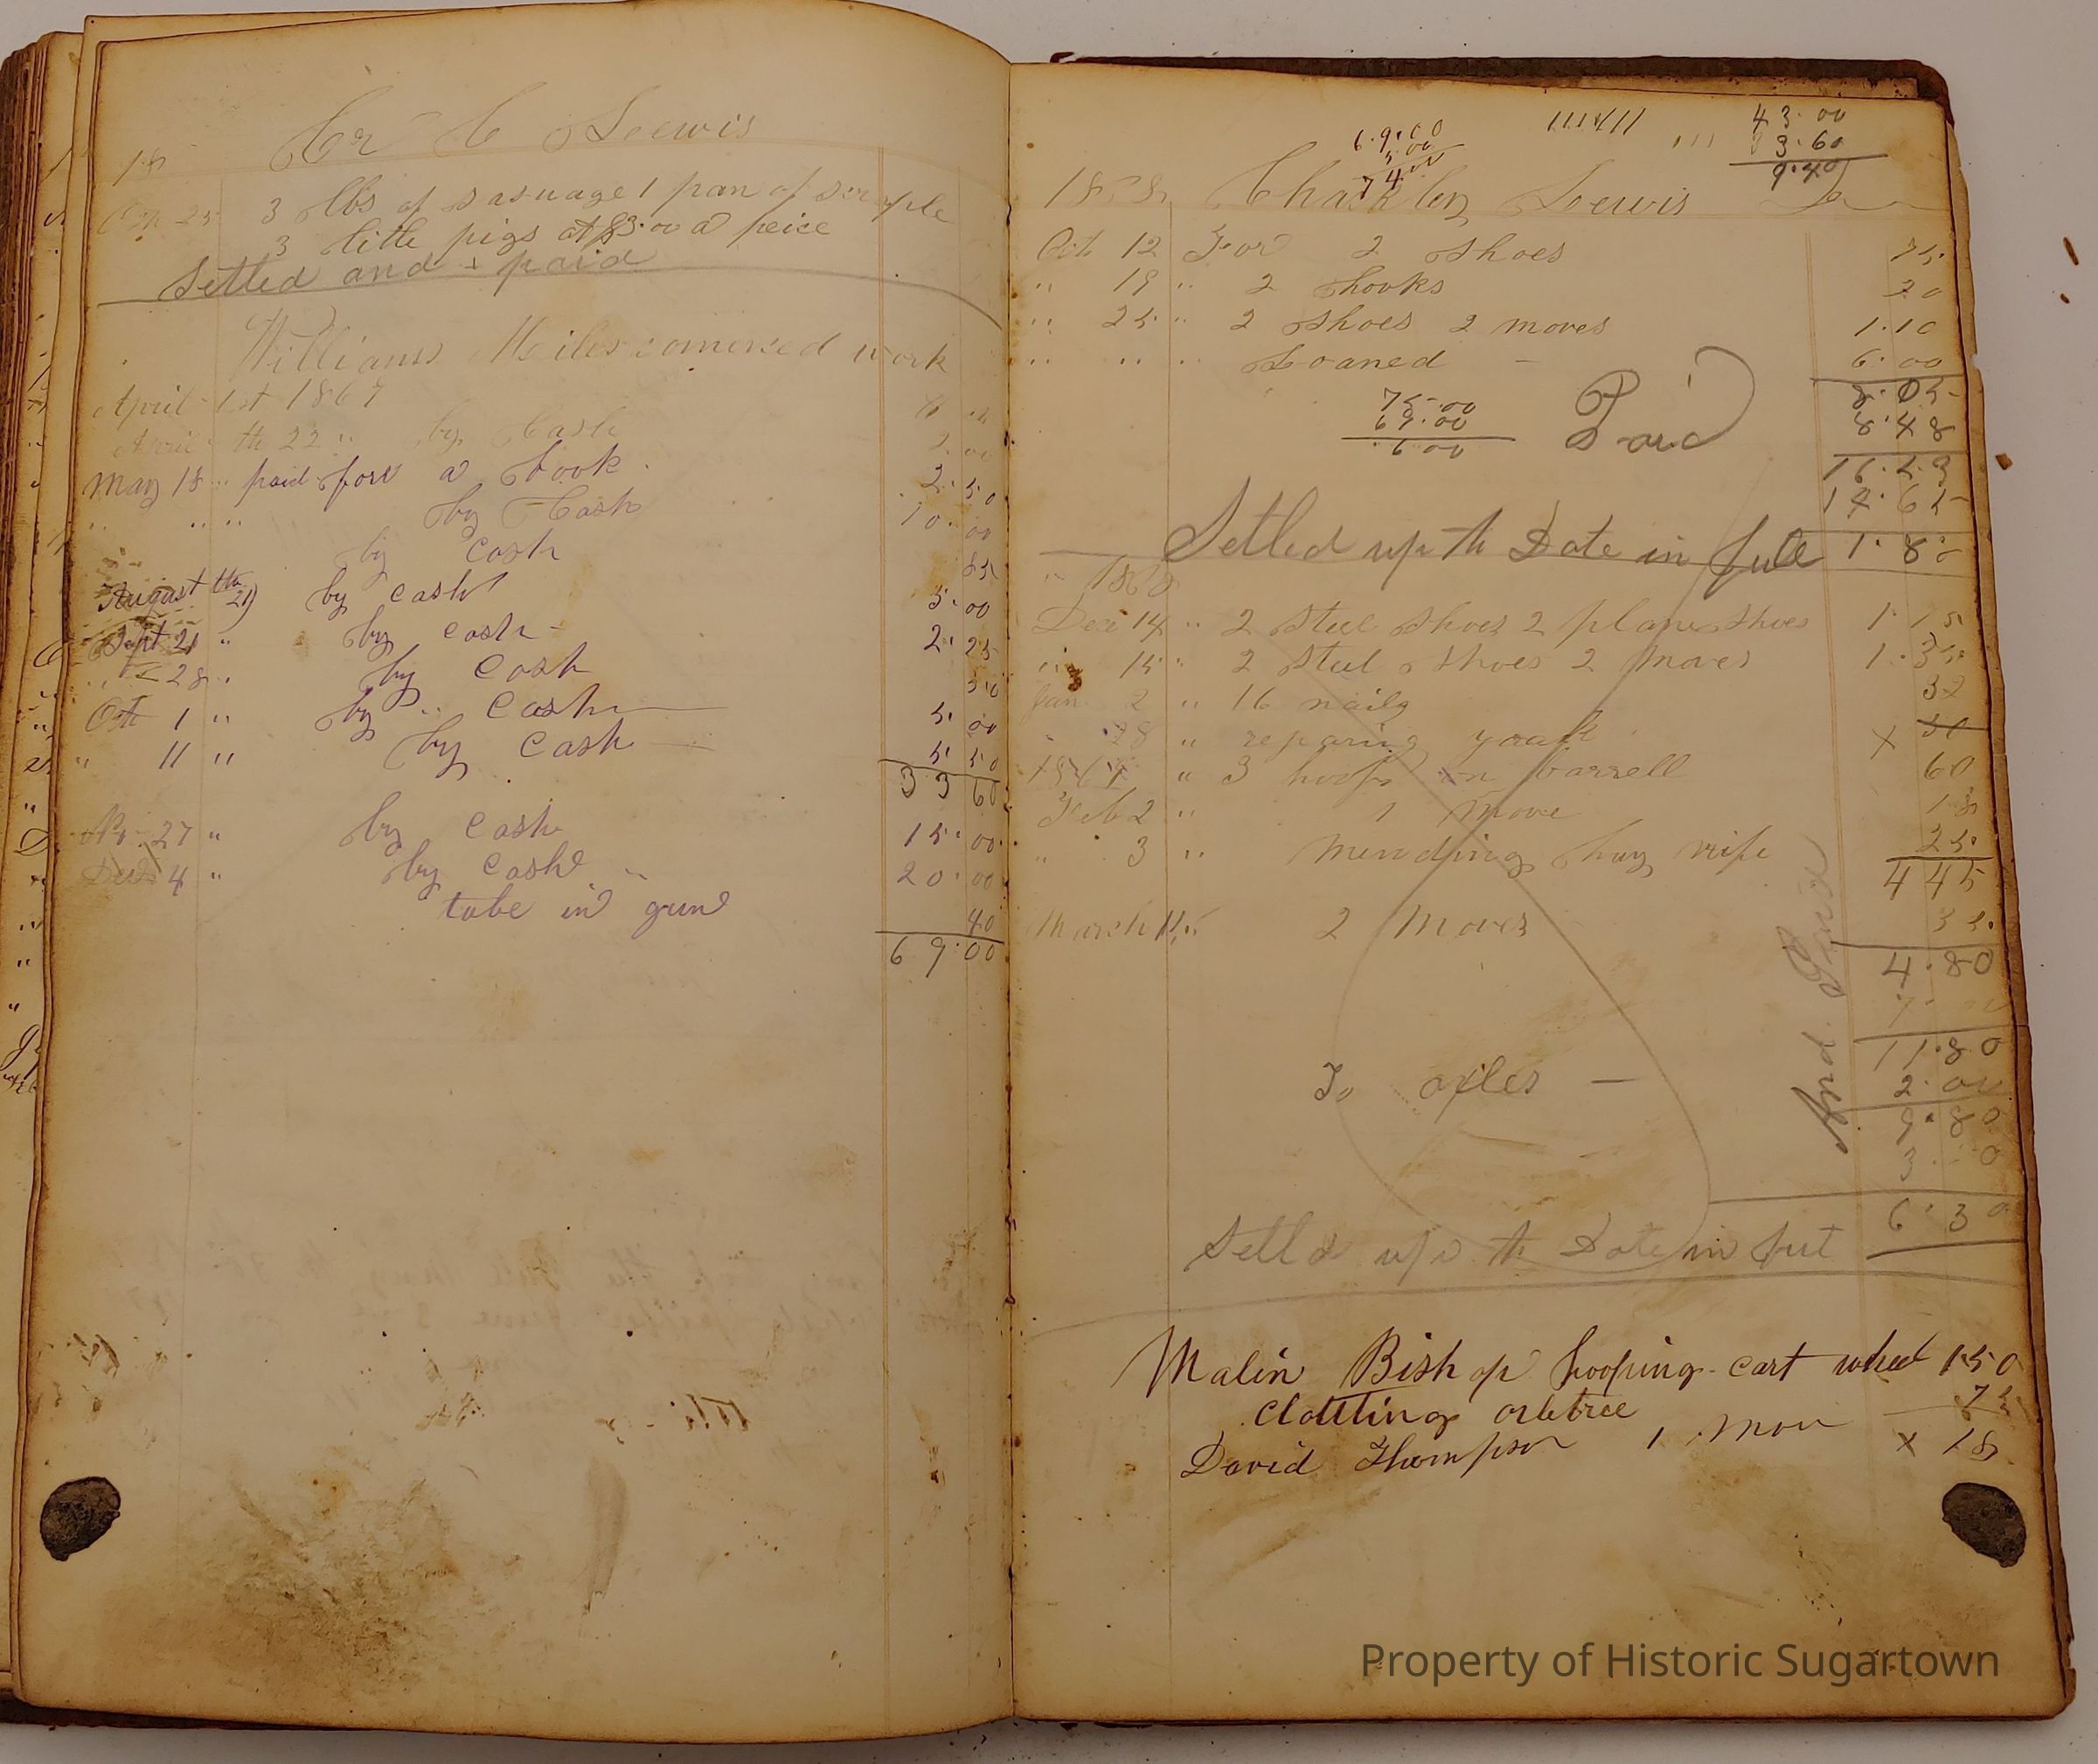 Cr C Leewis
18
25 3 lbs of sasuage 1 pan of
3 litle pigs at $3.00 a peice
Setled and + paid
William comenced work
April 1st 1869
April th 22 " by Cash 2.00
May 18 " paid for a book 2.50
" " " by Cash 10.00
by cash 85
August th 21 by cash 5.00
Sept 21 " by cash 2.25
" 28 " by cash 50
Oct 1 " by " cash 5.00
" 11 " by cash 5 50
33 60
27 " by cash 15.00
Dec 4 " by cash " 20.00
tube in gun 40
69.00
69.00
5.00
74.00
43.00
33.60
9.40
1868 Leewis Dr
Oct 12 For 2 Shoes 75
" 19 " 2 hooks 20
" 25 " 2 Shoes 2 moves 1.10
" " " Loaned 6.00
8.05
75.00
69.00
6.00
Paid
8.48
16.53
14.65
Setled up to Date in full 1.88
1868
Dec 14 " 2 Steel Shoes 2 plane Shoes 1.15
" 15 " 2 Steel Shoes 2 moves 1.35
Jan 2 " 16 nails 32
28 " reparing x 50
" 3 hoops on barrell 60
Feb 2 " 1 move 18
" 3 " Mending hay 25
4 45
March 2 Moves 35
4.80
11.80
To axles — 2.00
9.80
3
6.30
And Paid
Date in
Malin Bishop hooping cart wheel 1.50
axletree 75
David Thompson 1 x 18
Property of Historic Sugartown